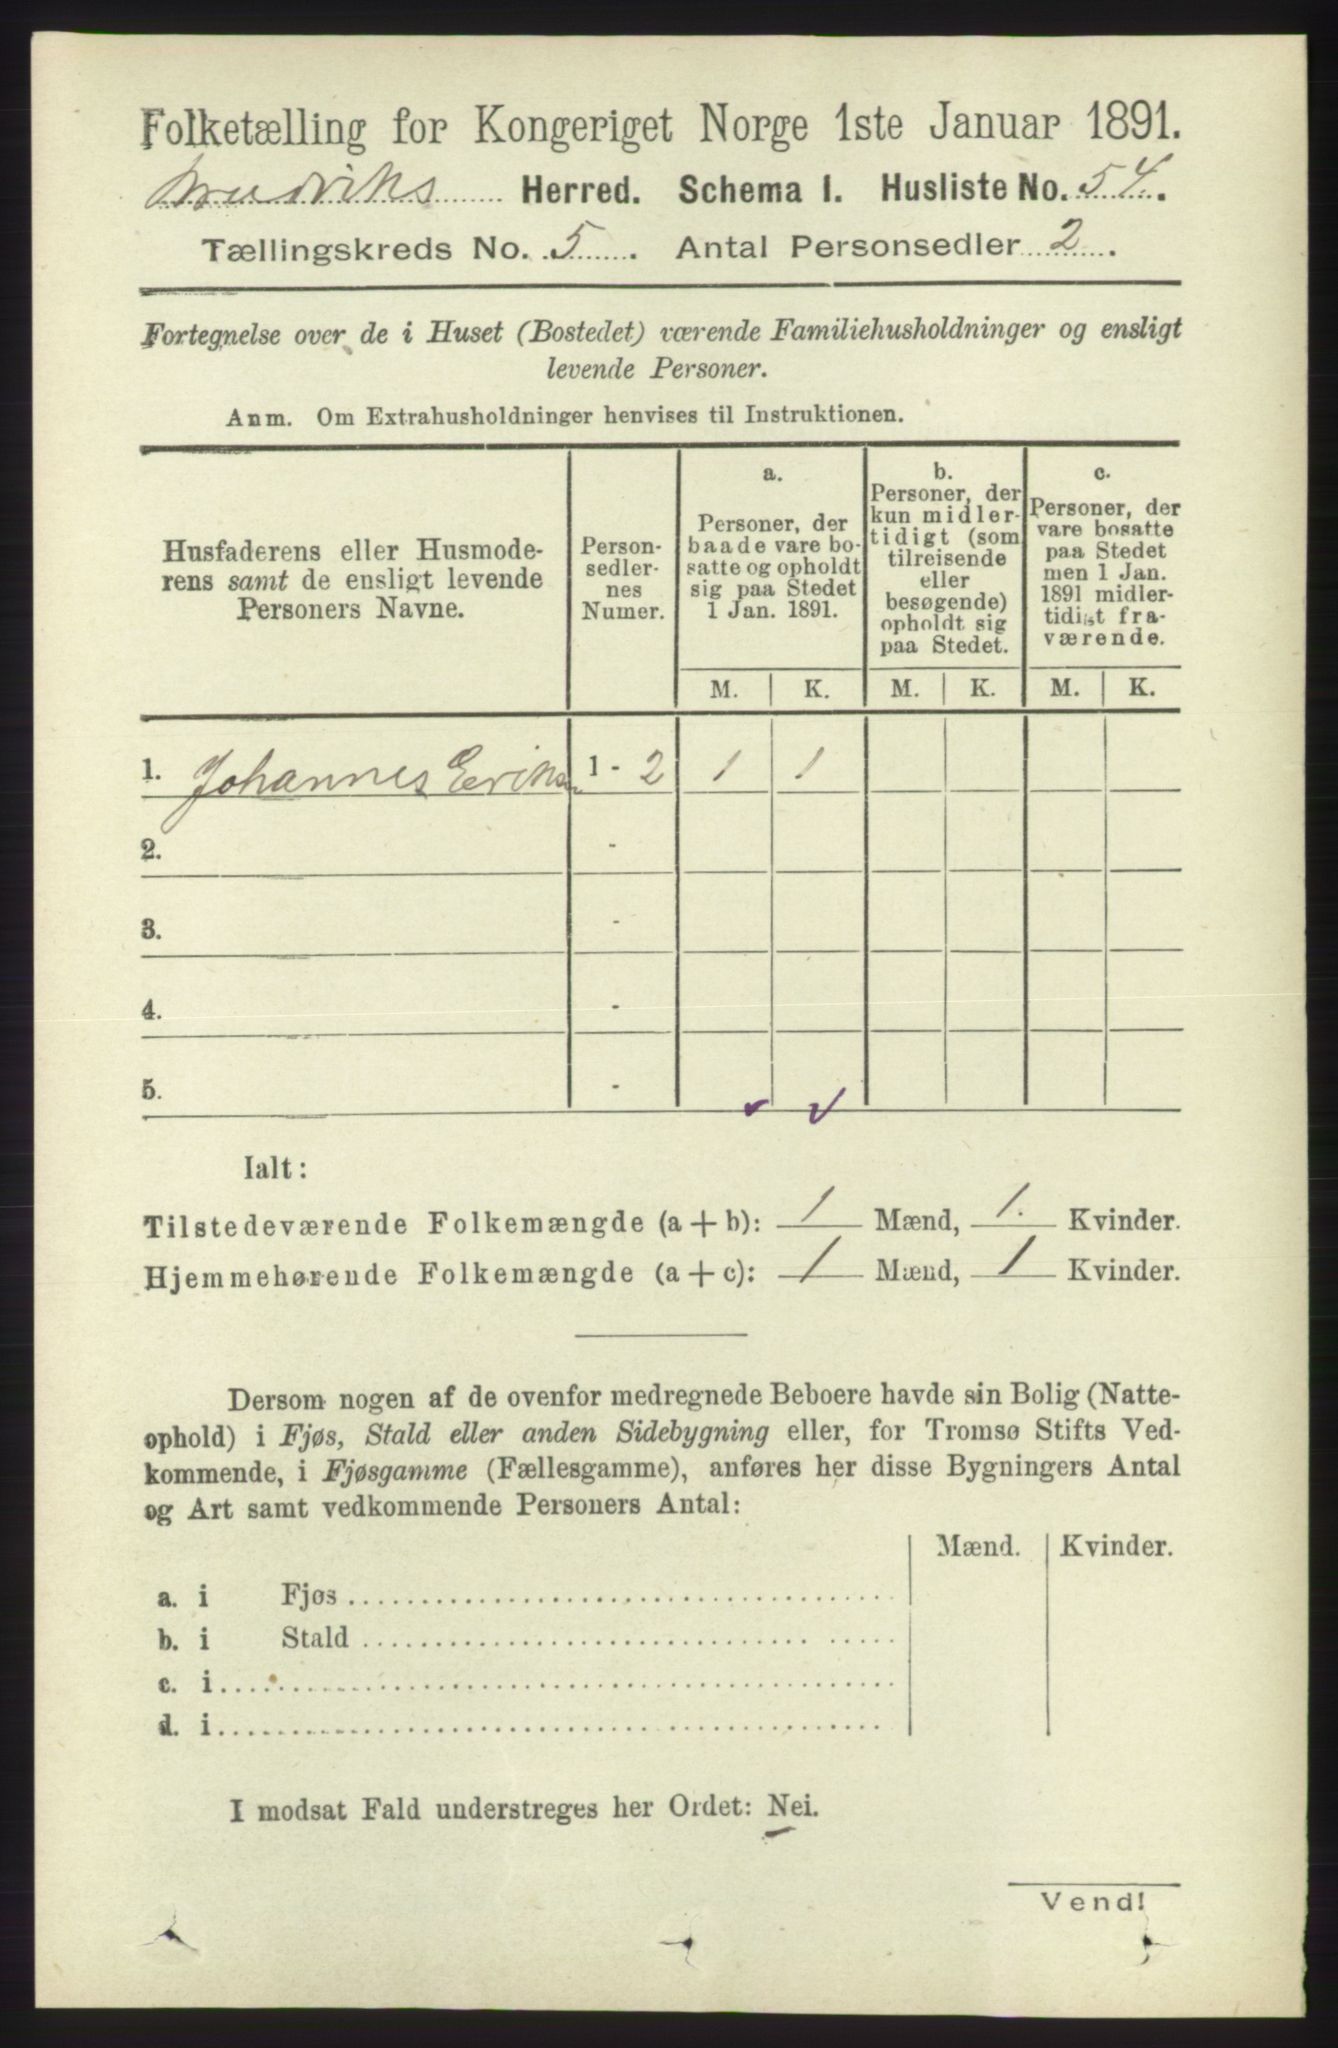 Folketælling for Kongeriget Norge 1ste Januar 1891.
Bruviks Herred. Schema 1. Husliste No. 54.
Tællingskreds No. 5. Antal Personsedler 2.
Fortegnelse over de i Huset (Bostedet) værende Familiehusholdninger og ensligt
levende Personer.
Anm. Om Extrahusholdninger henvises til Instruktionen.
Husfaderens eller Husmode-
rens samt de ensligt levende
Personers Navne.
Person-
sedler-
nes
Numer.
a.
Personer, der
baade vare bo-
satte og opholdt
sig paa Stedet
1 Jan. 1891.
b.
Personer, der
kun midler-
tidigt (som
tilreisende
eller
besøgende)
opholdt sig
paa Stedet.
c.
Personer, der
vare bosatte
paa Stedet
men 1 Jan.
1891 midler-
tidigt fra-
værende.
M. K. M. K. M. K.
1. Johannes Eriksen 1 - 2 1 1
2. -
3. -
4. -
5. -
Ialt:
Tilstedeværende Folkemængde (a + b): 1 Mænd, 1. Kvinder.
Hjemmehørende Folkemængde (a + c): 1 Mænd, 1 Kvinder.
Dersom nogen af de ovenfor medregnede Beboere havde sin Bolig (Natte-
ophold) i Fjøs, Stald eller anden Sidebygning eller, for Tromsø Stifts Ved-
kommende, i Fjøsgamme (Fællesgamme), anføres her disse Bygningers Antal
og Art samt vedkommende Personers Antal:
Mænd. Kvinder.
a. i Fjøs
b. i Stald
c. i
d. i
I modsat Fald understreges her Ordet: Nei.
Vend!